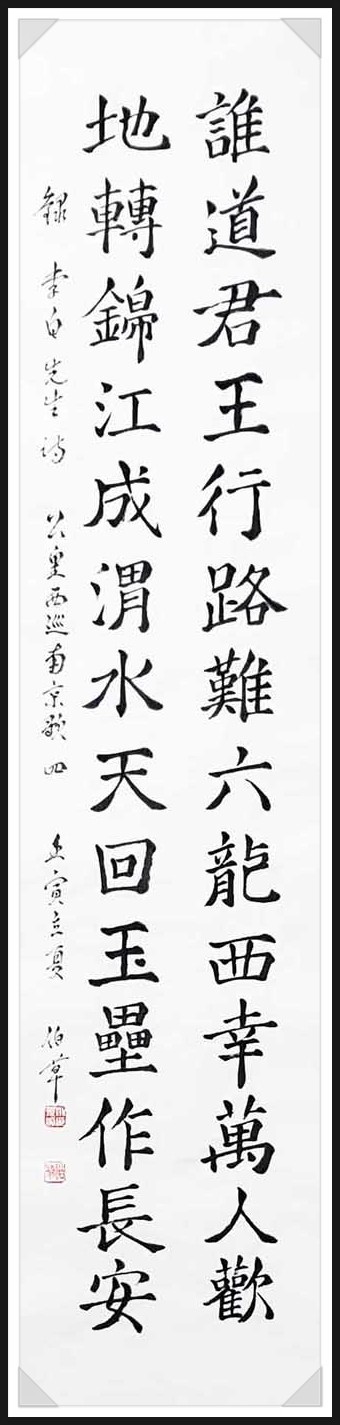 誰道君王行路難六龍西幸萬人歡
地轉錦江成渭水天回玉壘作長安
錄 李白先生詩 上皇西巡南京歌 四 壬寅立夏 伯草